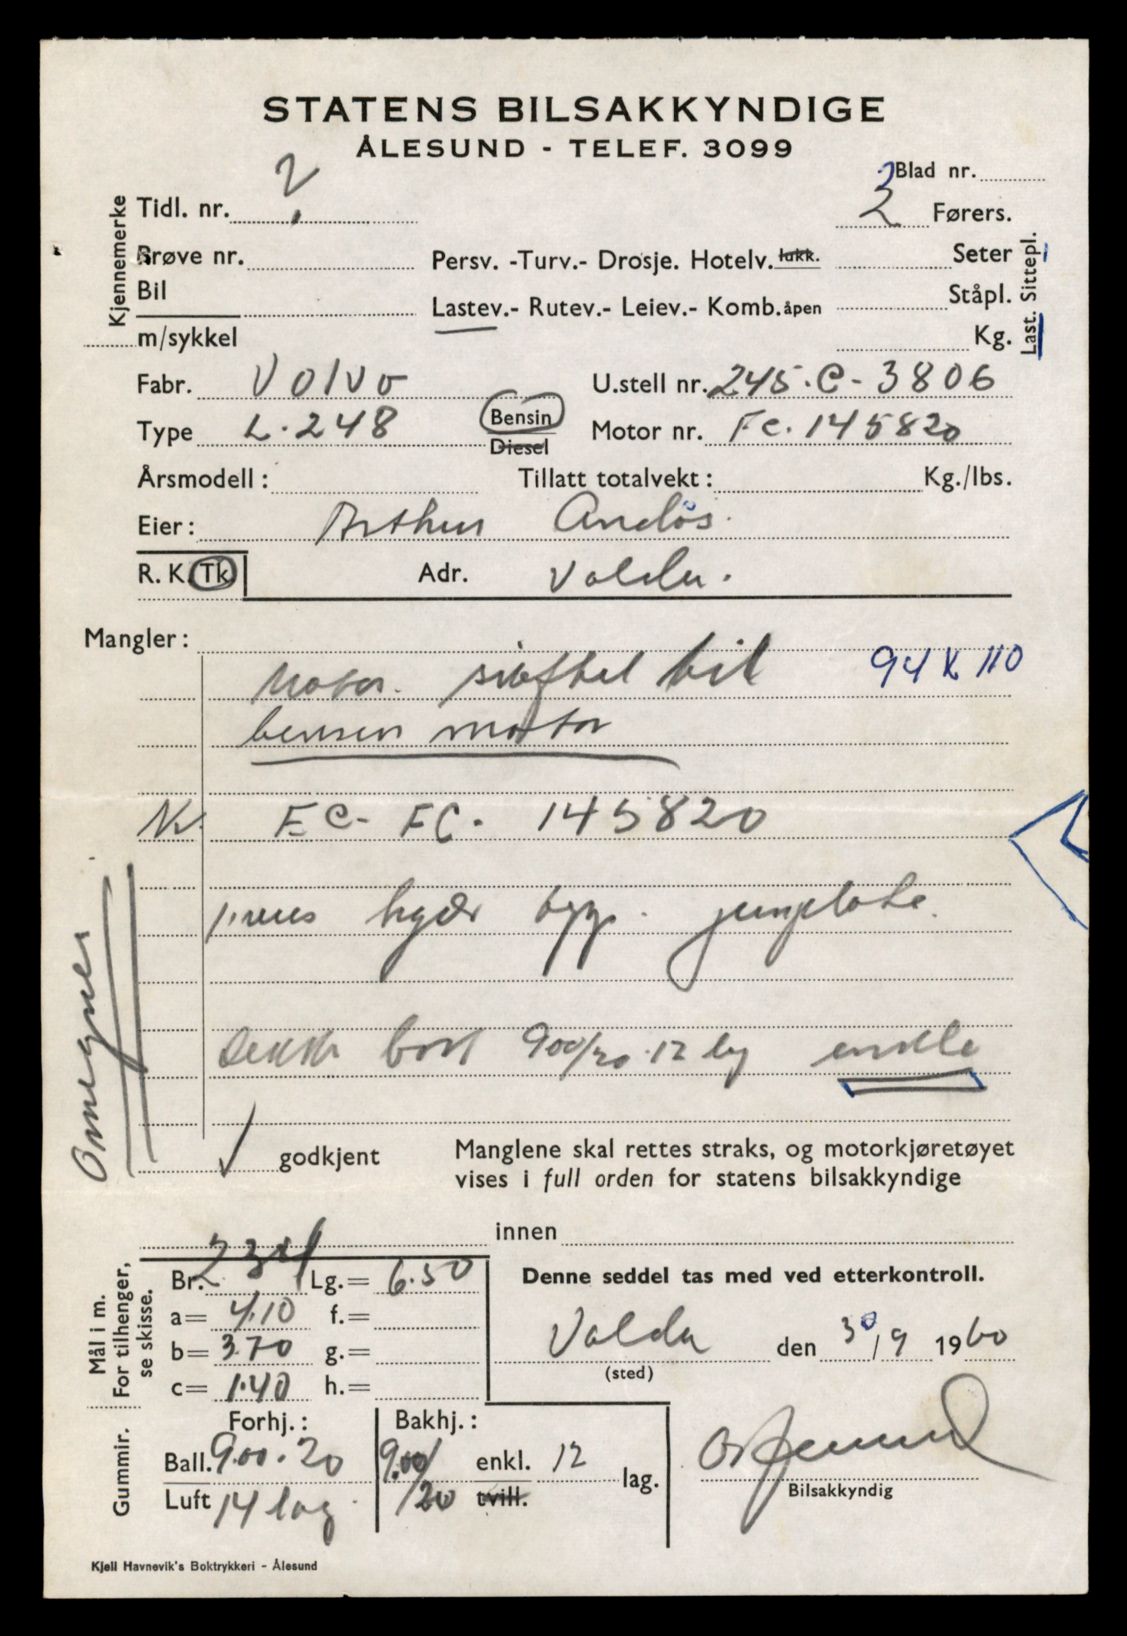 STATENS BILSAKKYNDIGE
ÅLESUND - TELEF. 3099
Blad nr.
Kjennemerke
Tidl. nr. ?
2 Førers.
Prøve nr.
Persv. -Turv.- Drosje. Hotelv. lukk.
Seter
Bil
Lastev.- Rutev.- Leiev.- Komb. åpen
Ståpl.
m/sykkel
Kg.
Last. Sittepl.
Fabr. Volvo
U.stell nr. 245.C-3806
Type L.248
Bensin
Diesel
Motor nr. FC.145820
Årsmodell :
Tillatt totalvekt :
Kg./lbs.
Eier : Arthur Andøs.
R. K. Tk
Adr. Volda.
Mangler :
Motor. skiftet bil
94 K 110
bensin motor
Nr. FC- FC. 145820
pines
Dekk bort 900/20 12 lg enkle
Omegner
✓ godkjent
Manglene skal rettes straks, og motorkjøretøyet
vises i full orden for statens bilsakkyndige
innen
Mål i m.
For tilhenger,
se skisse.
Br. 231 Lg.= 6.50
a= 4.10 f.=
b= 370 g.=
c= 1.40 h.=
Denne seddel tas med ved etterkontroll.
Volda den 30/9 1960
(sted)
Gummir.
Forhj. :
Bakhj. :
Ball. 9.00.20
9.00/20
enkl. 12 lag.
Luft 14 lag.
tvill.
Bilsakkyndig
Kjell Havnevik's Boktrykkeri - Ålesund